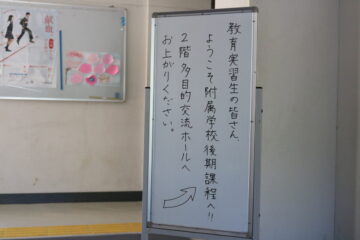 教育実習生の皆さん
ようこそ附属学校後期課程へ!!
2階多目的交流ホールへ
お上がりください。
献血